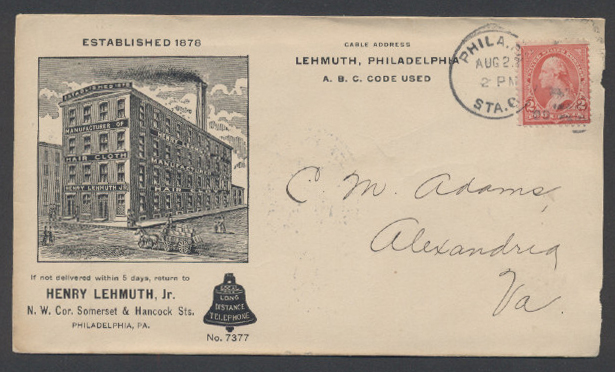 ESTABLISHED 1878
ESTABLISHED 1878
MANUFACTURER OF
HAIR CLOTH
HENRY LEHMUTH JR
If not delivered within 5 days, return to
HENRY LEHMUTH, Jr.
N. W. Cor. Somerset & Hancock Sts.
PHILADELPHIA, PA.
LONG
DISTANCE
TELEPHONE
No. 7377
CABLE ADDRESS
LEHMUTH, PHILADELPHIA
A. B. C. CODE USED
PHILA.
AUG 2
2 PM
STA. C
2 2
C. M. Adams,
Alexandria
Va.